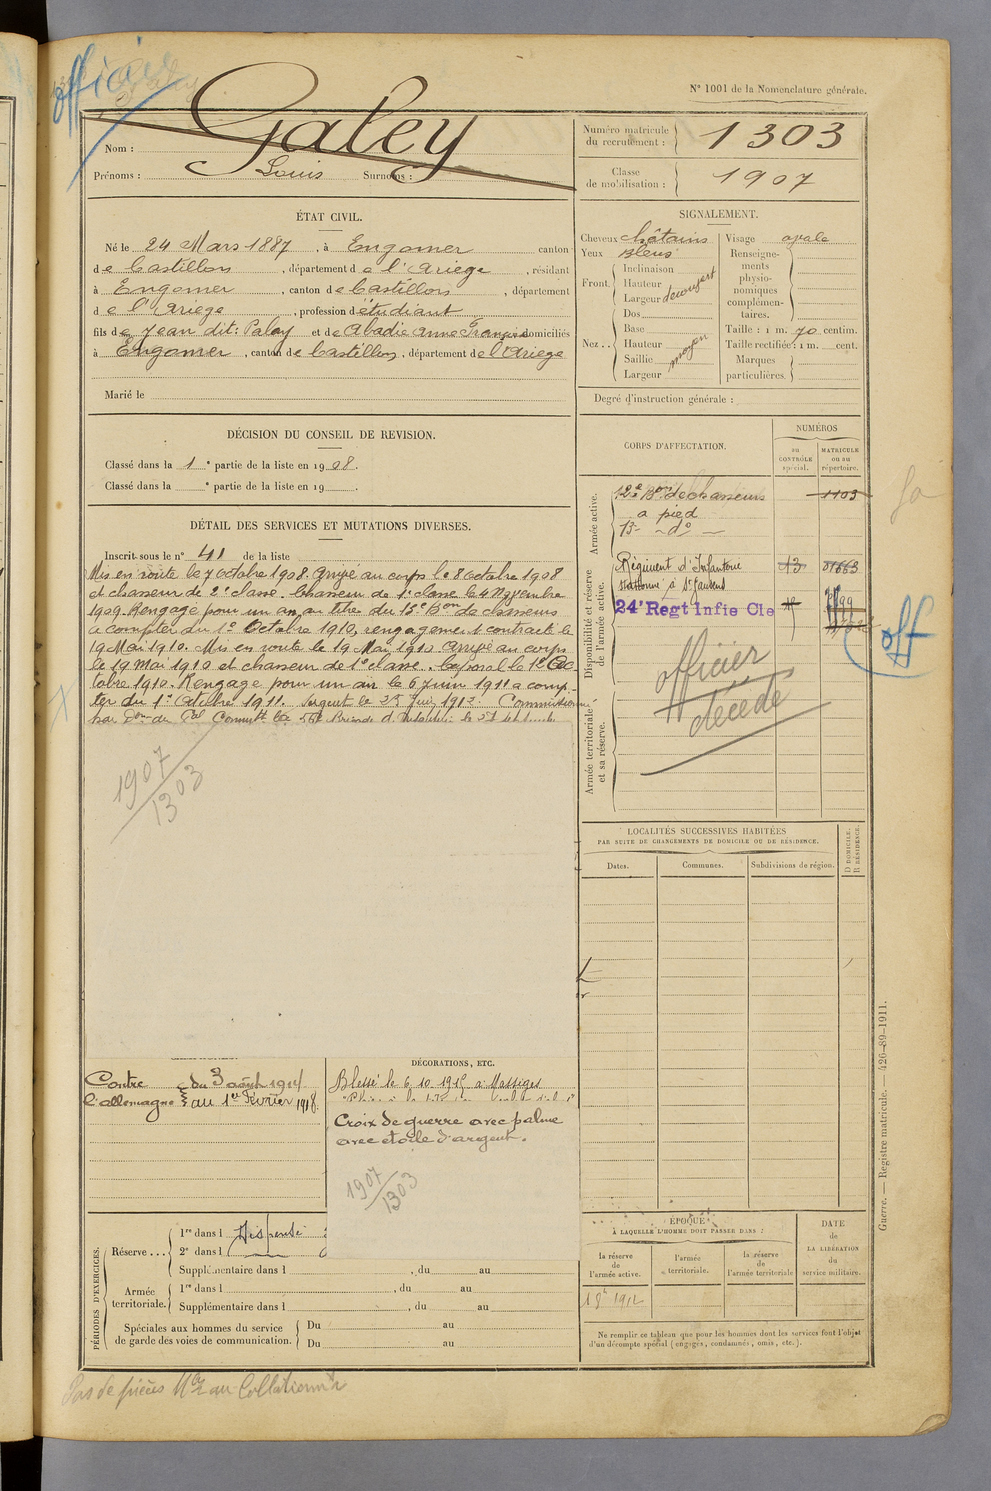 officier
N° 1001 de la Nomenclature générale.
Nom : Galey
Prénoms : Louis Surnoms :
Numéro matricule du recrutement : 1303
Classe de mobilisation : 1907
ÉTAT CIVIL.
Né le 24 Mars 1887, à Engomer canton
de Castillon, département de l'Ariège, résidant
à Engomer, canton de Castillon, département
de l'Ariège, profession d'étudiant
fils de Jean dit: Palay et de Abadie Anne Françoise domiciliés
à Engomer, canton de Castillon, département de l'Ariège
Marié le
SIGNALEMENT.
Cheveux châtains
Yeux bleus
Front. Inclinaison
Hauteur
Largeur
découvert
Nez.. Dos
Base
Hauteur
Saillie
Largeur
moyen
Visage ovale
Renseignements physionomiques complémentaires.
Taille : 1 m. 70 centim.
Taille rectifiée : 1 m. cent.
Marques particulières.
Degré d'instruction générale :
DÉCISION DU CONSEIL DE REVISION.
Classé dans la 1e partie de la liste en 1908.
Classé dans la e partie de la liste en 19 .
DÉTAIL DES SERVICES ET MUTATIONS DIVERSES.
Inscrit sous le n° 41 de la liste
Mis en route le 7 octobre 1908. Arrivé au corps le 8 octobre 1908
et chasseur de 2e classe. Chasseur de 1e classe le 4 Novembre
1909. Rengagé pour un an au titre du 13e Bon de chasseurs
à compter du 1er Octobre 1910, rengagement contracté le
19 Mai 1910. Mis en route le 19 Mai 1910 Arrivé au corps
le 19 mai 1910 et chasseur de 1e classe. Caporal le 1er Oc-
tobre 1910. Rengagé pour un an le 6 Juin 1911 à comp-
ter du 1er Octobre 1911. Sergent le Juin 1912. Commissionné
par du Gal Commt la 56e Brigade d'Infanterie le
1907
1303
CORPS D'AFFECTATION.
NUMÉROS
au CONTRÔLE spécial.
MATRICULE ou au répertoire.
Armée active.
12e Bon de chasseurs 1103
à pied
13 - do -
Disponibilité et réserve de l'armée active.
Régiment d'Infanterie 13 01663
stationné à St Gaudens
24e Regt Infie Cle
Armée territoriale et sa réserve.
officier
décédé
off
LOCALITÉS SUCCESSIVES HABITÉES
PAR SUITE DE CHANGEMENTS DE DOMICILE OU DE RÉSIDENCE.
Dates. Communes. Subdivisions de région.
D DOMICILE.
R RÉSIDENCE.
Contre l'allemagne du 3 août 1914
au 1er Février 1918.
DÉCORATIONS, ETC.
Blessé le 6 10 1915 à Massiges
Croix de guerre avec palme
avec étoile d'argent.
1907
1303
PÉRIODES D'EXERCICES.
Réserve... 1re dans l Dispensé
2e dans l
Supplémentaire dans l , du au
Armée territoriale. 1re dans l , du au
Supplémentaire dans l , du au
Spéciales aux hommes du service de garde des voies de communication. Du au
Du au
ÉPOQUE
À LAQUELLE L'HOMME DOIT PASSER DANS :
la réserve de l'armée active.
l'armée territoriale.
la réserve de l'armée territoriale
DATE de LA LIBÉRATION du service militaire.
1912
Ne remplir ce tableau que pour les hommes dont les services font l'objet
d'un décompte spécial (engagés, condamnés, omis, etc.).
Guerre. — Registre matricule. — 426-89-1911.
Pas de pièces